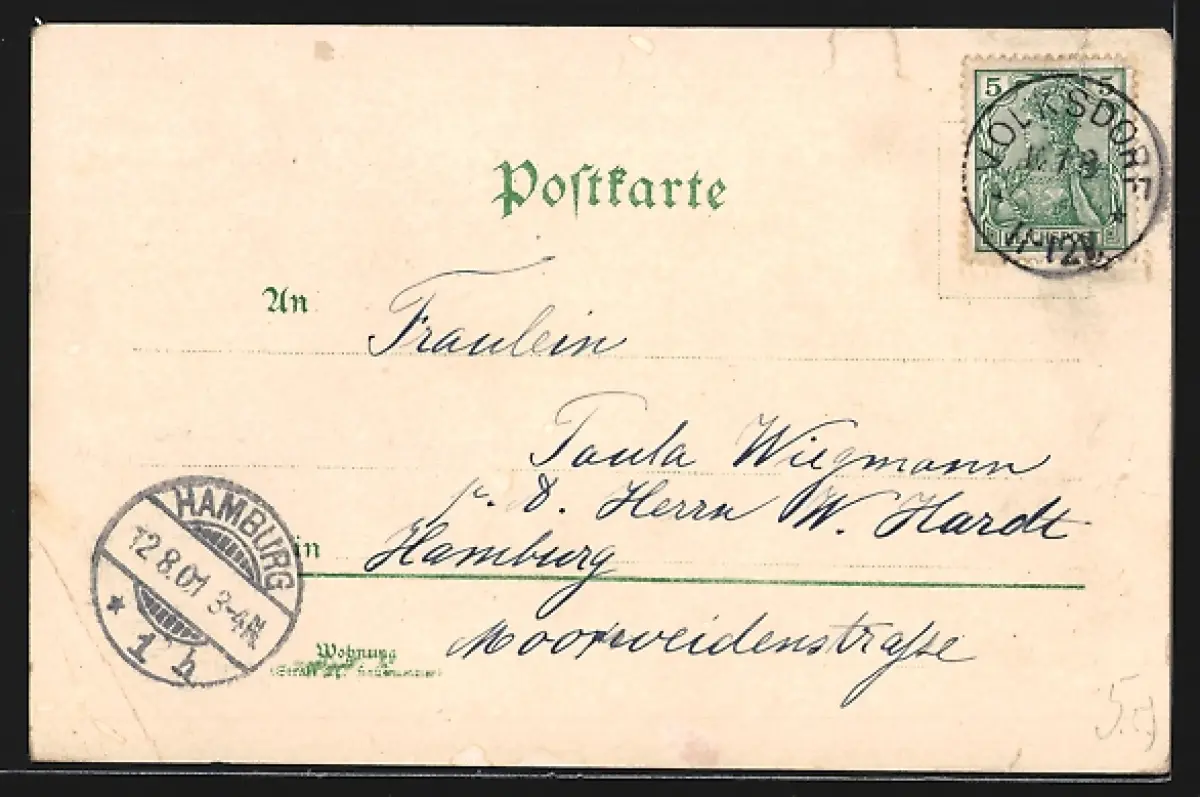 Postkarte
5 5
VOLKSDORF
REICHSPOST
12V.
An Fräulein
Paula Wiegmann
p. A. Herrn W. Hardt
in Hamburg
HAMBURG
12.8.01 3-4N
1 h
Moorweidenstraße
Wohnung
(Straße und Hausnummer)